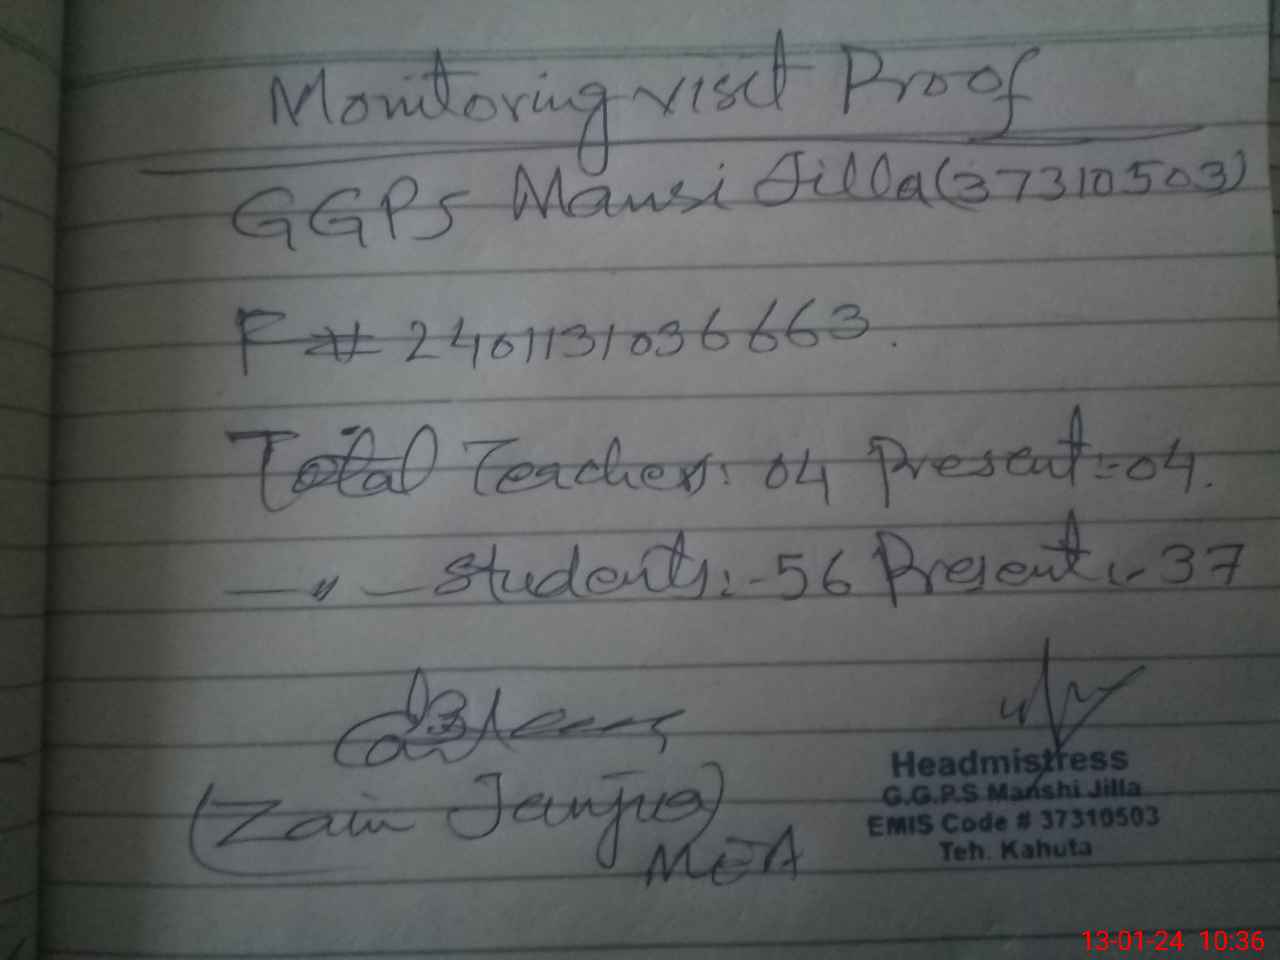 Monitoring visit Proof
GGPS Mansi Jilla (37310503)
F # 2401131036663.
Total Teachers: 04 Present:- 04.
—〃— Students:- 56 Present:- 37
(Zain Janjua)
MEA
Headmistress
G.G.P.S Manshi Jilla
EMIS Code # 37310503
Teh. Kahuta
13-01-24 10:36